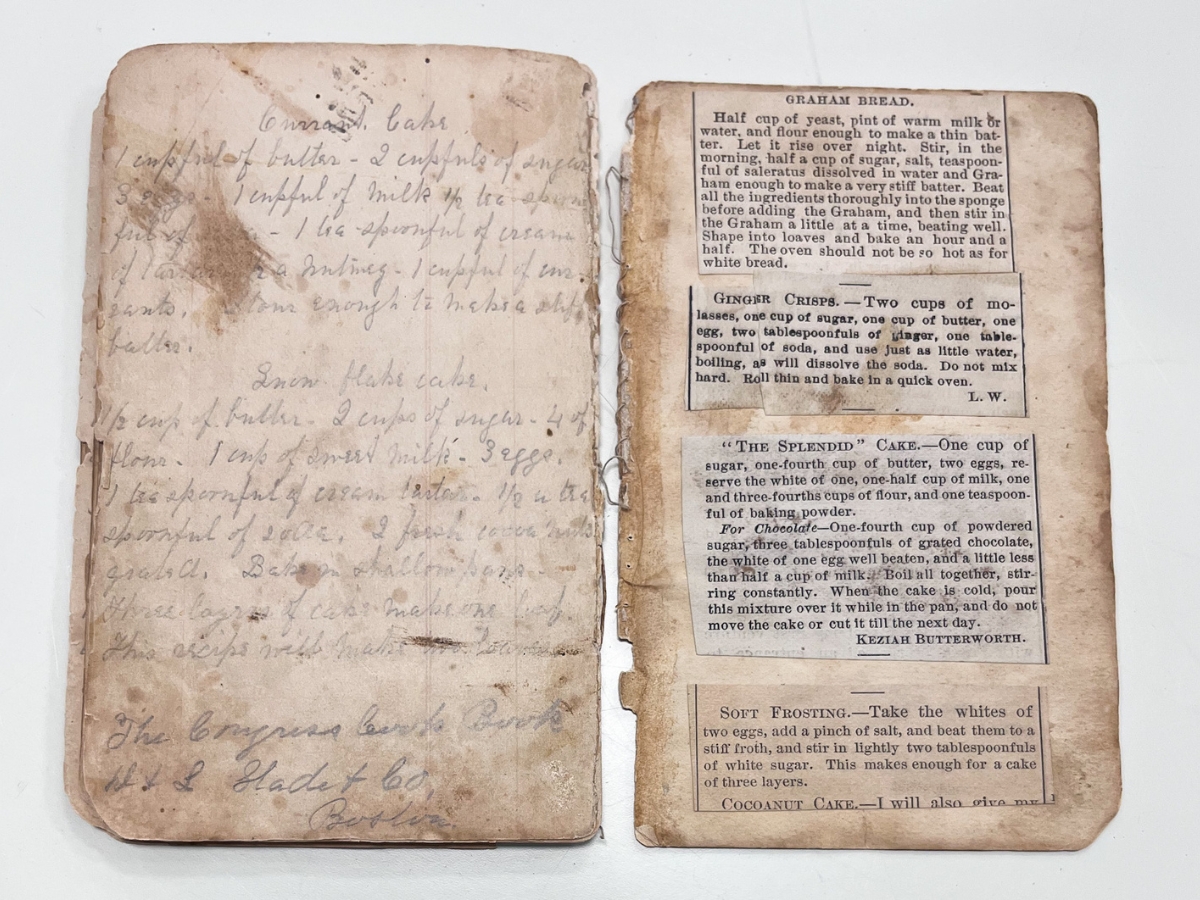 Currant Cake
1 cupful of butter - 2 cupfuls of sugar
3 eggs - 1 cupful of milk 1/2 tea spoon
ful of - 1 tea-spoonful of cream
of tartar a nutmeg - 1 cupful of cur-
rants. Flour enough to make a stiff
batter.
Snow flake cake.
1/2 cup of butter - 2 cups of sugar - 4 of
flour - 1 cup of sweet milk - 3 eggs.
1 tea spoonful of cream tartar - 1/2 a tea
spoonful of soda. 2 fresh cocoa nuts
grated. Bake in shallow pans -
Three layers of cake make one loaf.
This recipe will make two
The Congress Cook Book
D & L Slade & Co,
Boston
GRAHAM BREAD.
Half cup of yeast, pint of warm milk or
water, and flour enough to make a thin bat-
ter. Let it rise over night. Stir, in the
morning, half a cup of sugar, salt, teaspoon-
ful of saleratus dissolved in water and Gra-
ham enough to make a very stiff batter. Beat
all the ingredients thoroughly into the sponge
before adding the Graham, and then stir in
the Graham a little at a time, beating well.
Shape into loaves and bake an hour and a
half. The oven should not be so hot as for
white bread.
GINGER CRISPS.—Two cups of mo-
lasses, one cup of sugar, one cup of butter, one
egg, two tablespoonfuls of ginger, one table-
spoonful of soda, and use just as little water,
boiling, as will dissolve the soda. Do not mix
hard. Roll thin and bake in a quick oven.
L. W.
"THE SPLENDID" CAKE.—One cup of
sugar, one-fourth cup of butter, two eggs, re-
serve the white of one, one-half cup of milk, one
and three-fourths cups of flour, and one teaspoon-
ful of baking powder.
For Chocolate—One-fourth cup of powdered
sugar, three tablespoonfuls of grated chocolate,
the white of one egg well beaten, and a little less
than half a cup of milk. Boil all together, stir-
ring constantly. When the cake is cold, pour
this mixture over it while in the pan, and do not
move the cake or cut it till the next day.
KEZIAH BUTTERWORTH.
SOFT FROSTING.—Take the whites of
two eggs, add a pinch of salt, and beat them to a
stiff froth, and stir in lightly two tablespoonfuls
of white sugar. This makes enough for a cake
of three layers.
COCOANUT CAKE.—I will also give my